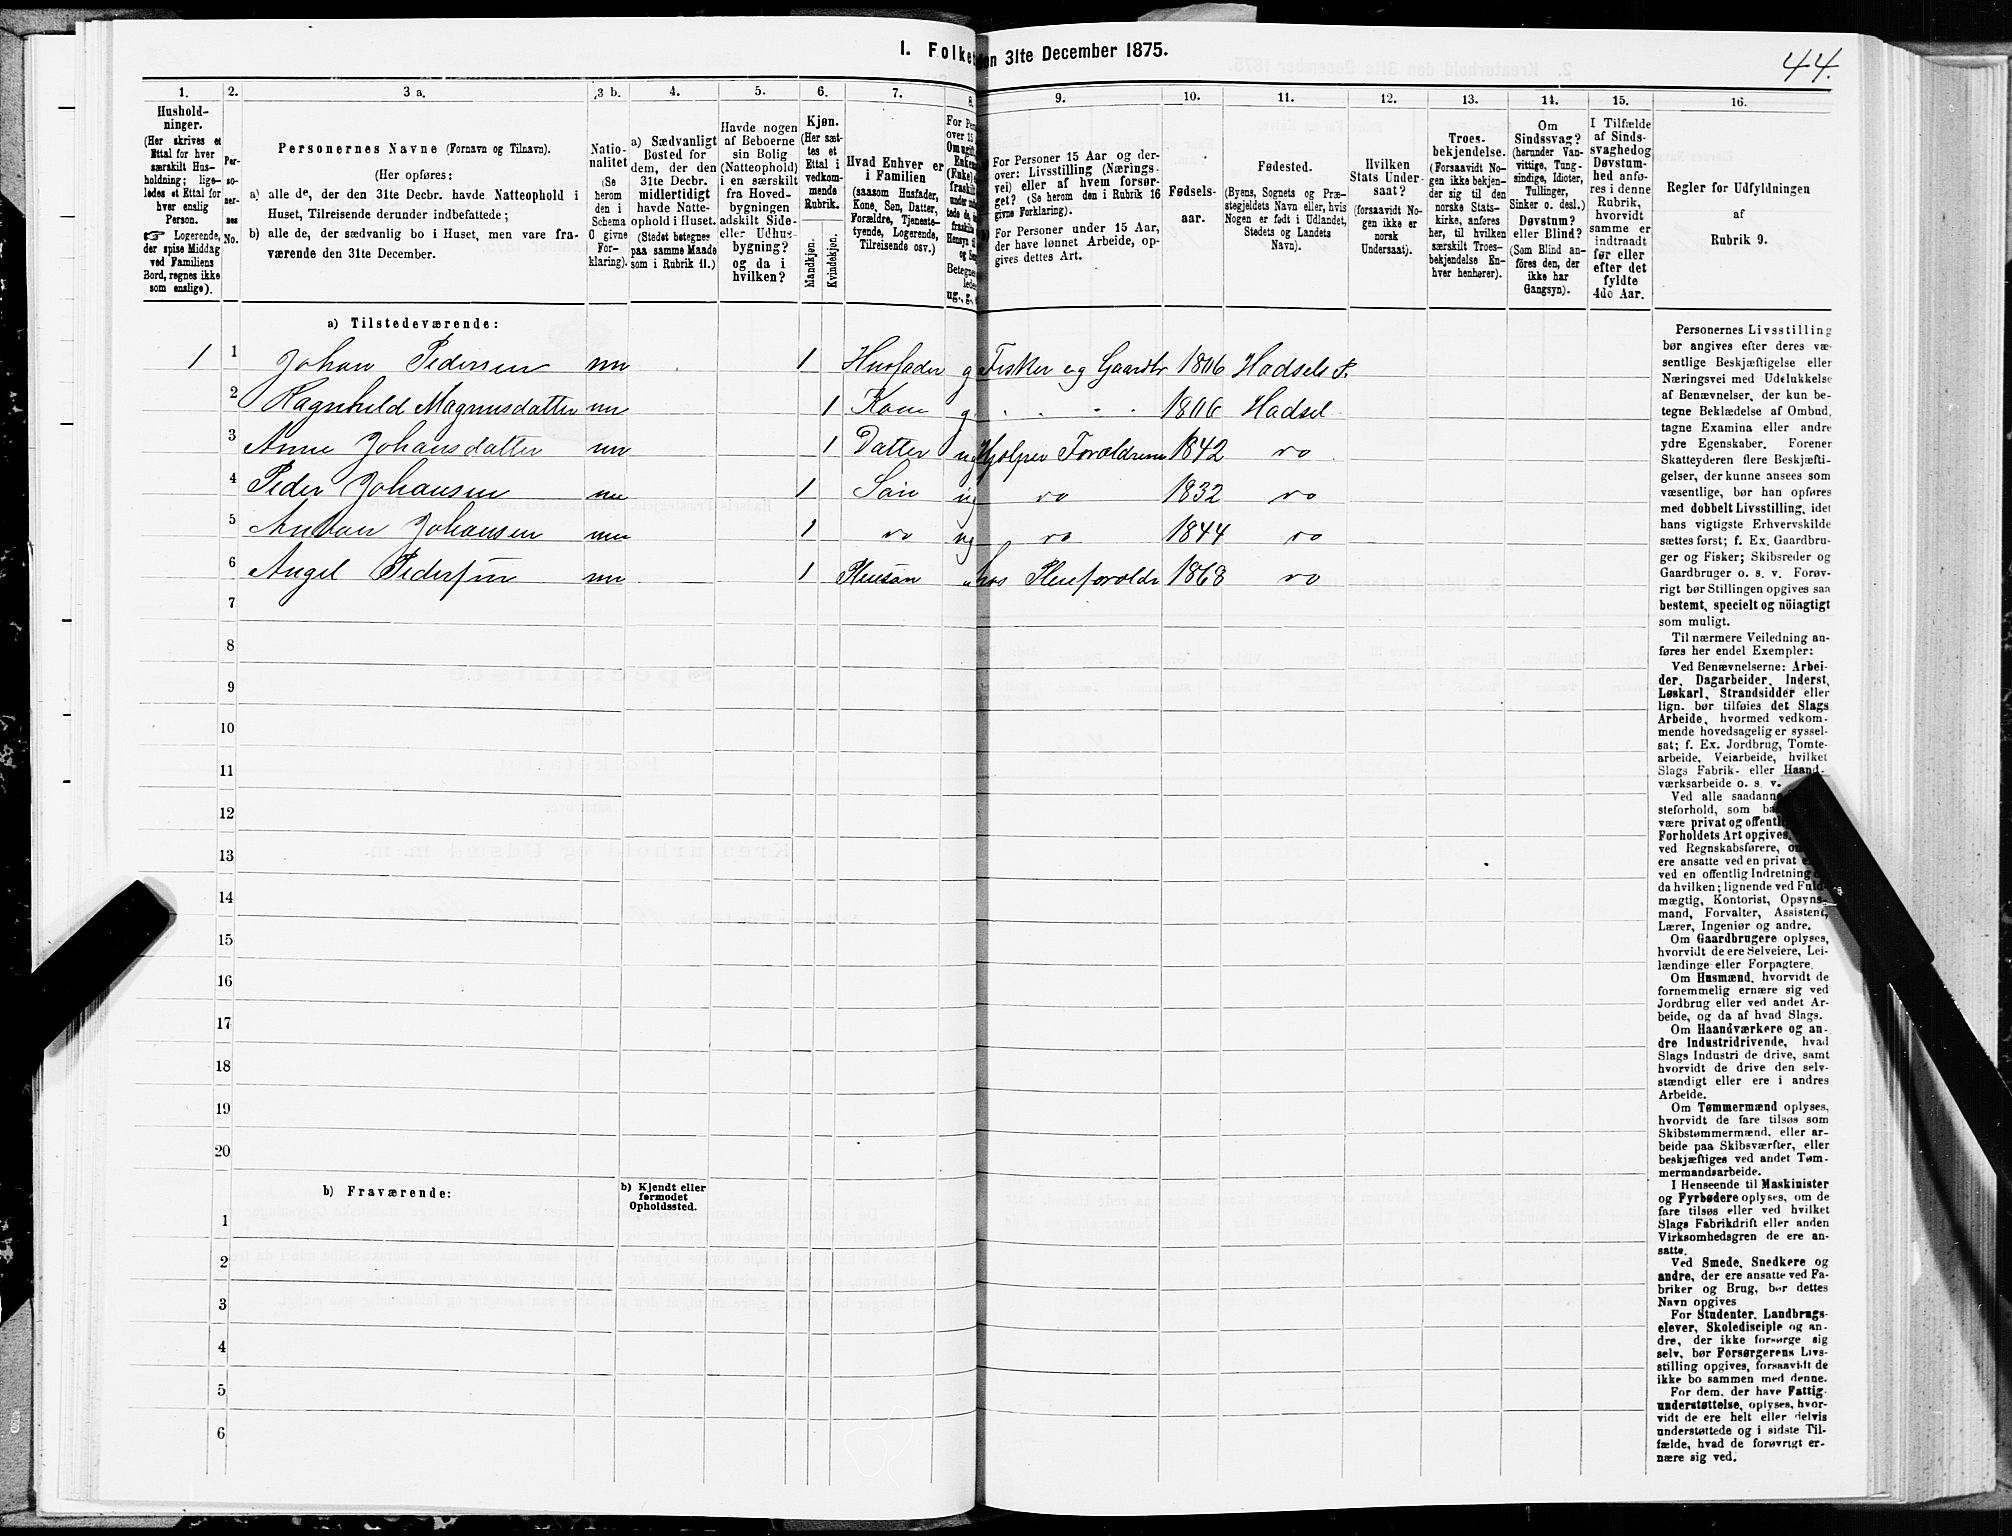 1. Folket den 31te December 1875.
44.
1.
Hushold-
ninger.
(Her skrives et
Ettal for hver
særskilt Hus-
holdning; lige-
ledes et Ettal for
hver enslig
Person.
☞ Logerende,
der spise Middag
ved Familiens
Bord, regnes ikke
som enslige).
2.
Per-
so-
ner-
nes
No.
3 a.
Personernes Navne (Fornavn og Tilnavn).
(Her opføres:
a) alle de, der den 31te Decbr. havde Natteophold i
Huset, Tilreisende derunder indbefattede;
b) alle de, der sædvanlig bo i Huset, men vare fra-
værende den 31te December.
3 b.
Natio-
nalitet
(Se
herom
den i
Schema
O givne
For-
klaring).
4.
a) Sædvanligt
Bosted for
dem, der den
31te Decbr.
midlertidigt
havde Natte-
ophold i Huset.
(Stedet betegnes
paa samme Maade
som i Rubrik 11.)
5.
Havde nogen
af Beboerne
sin Bolig
(Natteophold)
i en særskilt
fra Hoved-
bygningen
adskilt Side-
eller Udhus-
bygning?
og da i
hvilken?
6.
Kjøn.
(Her sæt-
tes et
Ettal i
vedkom-
mende
Rubrik.
Mandkjøn.
Kvindekjøn.
7.
Hvad Enhver er
i Familien
(saasom Husfader,
Kone, Søn, Datter,
Forældre, Tjeneste-
tyende, Logerende,
Tilreisende osv.)
8.
For Pers
over 15
Omugift
Enkem
(Enke)
fraskilt
Betegnes
ledes
ug., g.,
9.
For Personer 15 Aar og der-
over: Livsstilling (Nærings-
vei) eller af hvem forsør-
get? (Se herom den i Rubrik 16
givne Forklaring).
b) For Personer under 15 Aar,
der have lønnet Arbeide, op-
gives dettes Art.
10.
Fødsels-
aar.
11.
Fødested.
(Byens, Sognets og Præ-
stegjeldets Navn eller, hvis
Nogen er født i Udlandet,
Stedets og Landets
Navn).
12.
Hvilken
Stats Under-
saat?
(forsaavidt No-
gen ikke er
norsk
Undersaat).
13.
Troes-
bekjendelse.
(Forsaavidt No-
gen ikke bekjen-
der sig til den
norske Stats-
kirke, anføres
her, til hvilken
særskilt Troes-
bekjendelse En-
hver henhører).
14.
Om
Sindssvag?
(herunder Van-
vittige, Tung-
sindige, Idioter,
Tullinger,
Sinker o. desl.)
Døvstum?
eller Blind?
(Som Blind an-
føres den, der
ikke har
Gangsyn).
15.
I Tilfælde
af Sinds-
svaghed og
Døvstum-
hed anfø-
res i denne
Rubrik,
hvorvidt
samme er
indtraadt
før eller
efter det
fyldte
4de Aar.
16.
Regler for Udfyldningen
af
Rubrik 9.
a) Tilstedeværende:
1 1 Johan Pedersen nn 1 Husfader g Fisker og Gaardbr 1806 Hadsels P.
2 Ragnhild Magnusdatter nn 1 Kone g 1806 Hadsel
3 Anne Johansdatter nn 1 Datter ug Hjælper Forældrene 1842 do
4 Peder Johansen nn 1 Søn ug do 1832 do
5 Anton Johansen nn 1 do ug do 1844 do
6 Angel Pedersen nn 1 Pleiesøn hos Pleieforældr 1868 do
7
8
9
10
11
12
13
14
15
16
17
18
19
20
b) Fraværende:
b) Kjendt eller
formodet
Opholdssted.
1
2
3
4
5
6
Personernes Livsstilling
bør angives efter deres væ-
sentlige Beskjæftigelse eller
Næringsvei med Udelukkelse
af Benævnelser, der kun be-
tegne Beklædelse af Ombud,
tagne Examina eller andre
ydre Egenskaber. Forener
Skatteyderen flere Beskjæfti-
gelser, der kunne ansees som
væsentlige, bør han opføres
med dobbelt Livsstilling, idet
hans vigtigste Erhvervskilde
sættes først; f. Ex. Gaardbru-
ger og Fisker; Skibsreder og
Gaardbruger o. s. v. Forøv-
rigt bør Stillingen opgives saa
bestemt, specielt og nöiagtigt
som muligt.
Til nærmere Veiledning an-
føres her endel Exempler:
Ved Benævnelserne: Arbei-
der, Dagarbeider, Inderst,
Løskarl, Strandsidder eller
lign. bør tilføies det Slags
Arbeide, hvormed vedkom-
mende hovedsagelig er syssel-
sat; f. Ex. Jordbrug, Tomte-
arbeide, Veiarbeide, hvilket
Slags Fabrik- eller Haand-
værksarbeide o. s. v.
Ved alle saadanne
steforhold, som
være privat og offentli
Forholdets Art opgives,
ved Regnskabsførere,
ere ansatte ved en privat
ved en offentlig Indretning
da hvilken; lignende ved Fuld-
mægtig, Kontorist, Opsyns-
mand, Forvalter, Assistent,
Lærer, Ingeniør og andre.
Om Gaardbrugere oplyses,
hvorvidt de ere Selveiere, Lei-
lændinge eller Forpagtere.
Om Husmænd, hvorvidt de
fornemmelig ernære sig ved
Jordbrug eller ved andet Ar-
beide, og da af hvad Slags.
Om Haandværkere og an-
dre Industridrivende, hvad
Slags Industri de drive, samt
hvorvidt de drive den selv-
stændigt eller ere i andres
Arbeide.
Om Tømmermænd oplyses,
hvorvidt de fare tilsøs som
Skibstømmermænd, eller ar-
beide paa Skibsværfter, eller
beskjæftiges ved andet Tøm-
mermandsarbeide.
I Henseende til Maskinister
og Fyrbødere oplyses, om de
fare tilsøs eller ved hvilket
Slags Fabrikdrift eller anden
Virksomhedsgren de ere an-
satte.
Ved Smede, Snedkere og
andre, der ere ansatte ved Fa-
briker og Brug, bør dettes
Navn opgives
For Studenter, Landbrugs-
elever, Skoledisciple og an-
dre, der ikke forsørge sig
selv, bør Forsørgerens Livs-
stilling opgives, forsaavidt de
ikke bo sammen med denne.
For dem, der have Fattig-
understøttelse, oplyses, hvor-
vidt de ere helt eller delvis
understøttede og i sidste Til-
fælde, hvad de forøvrigt er-
nære sig ved.